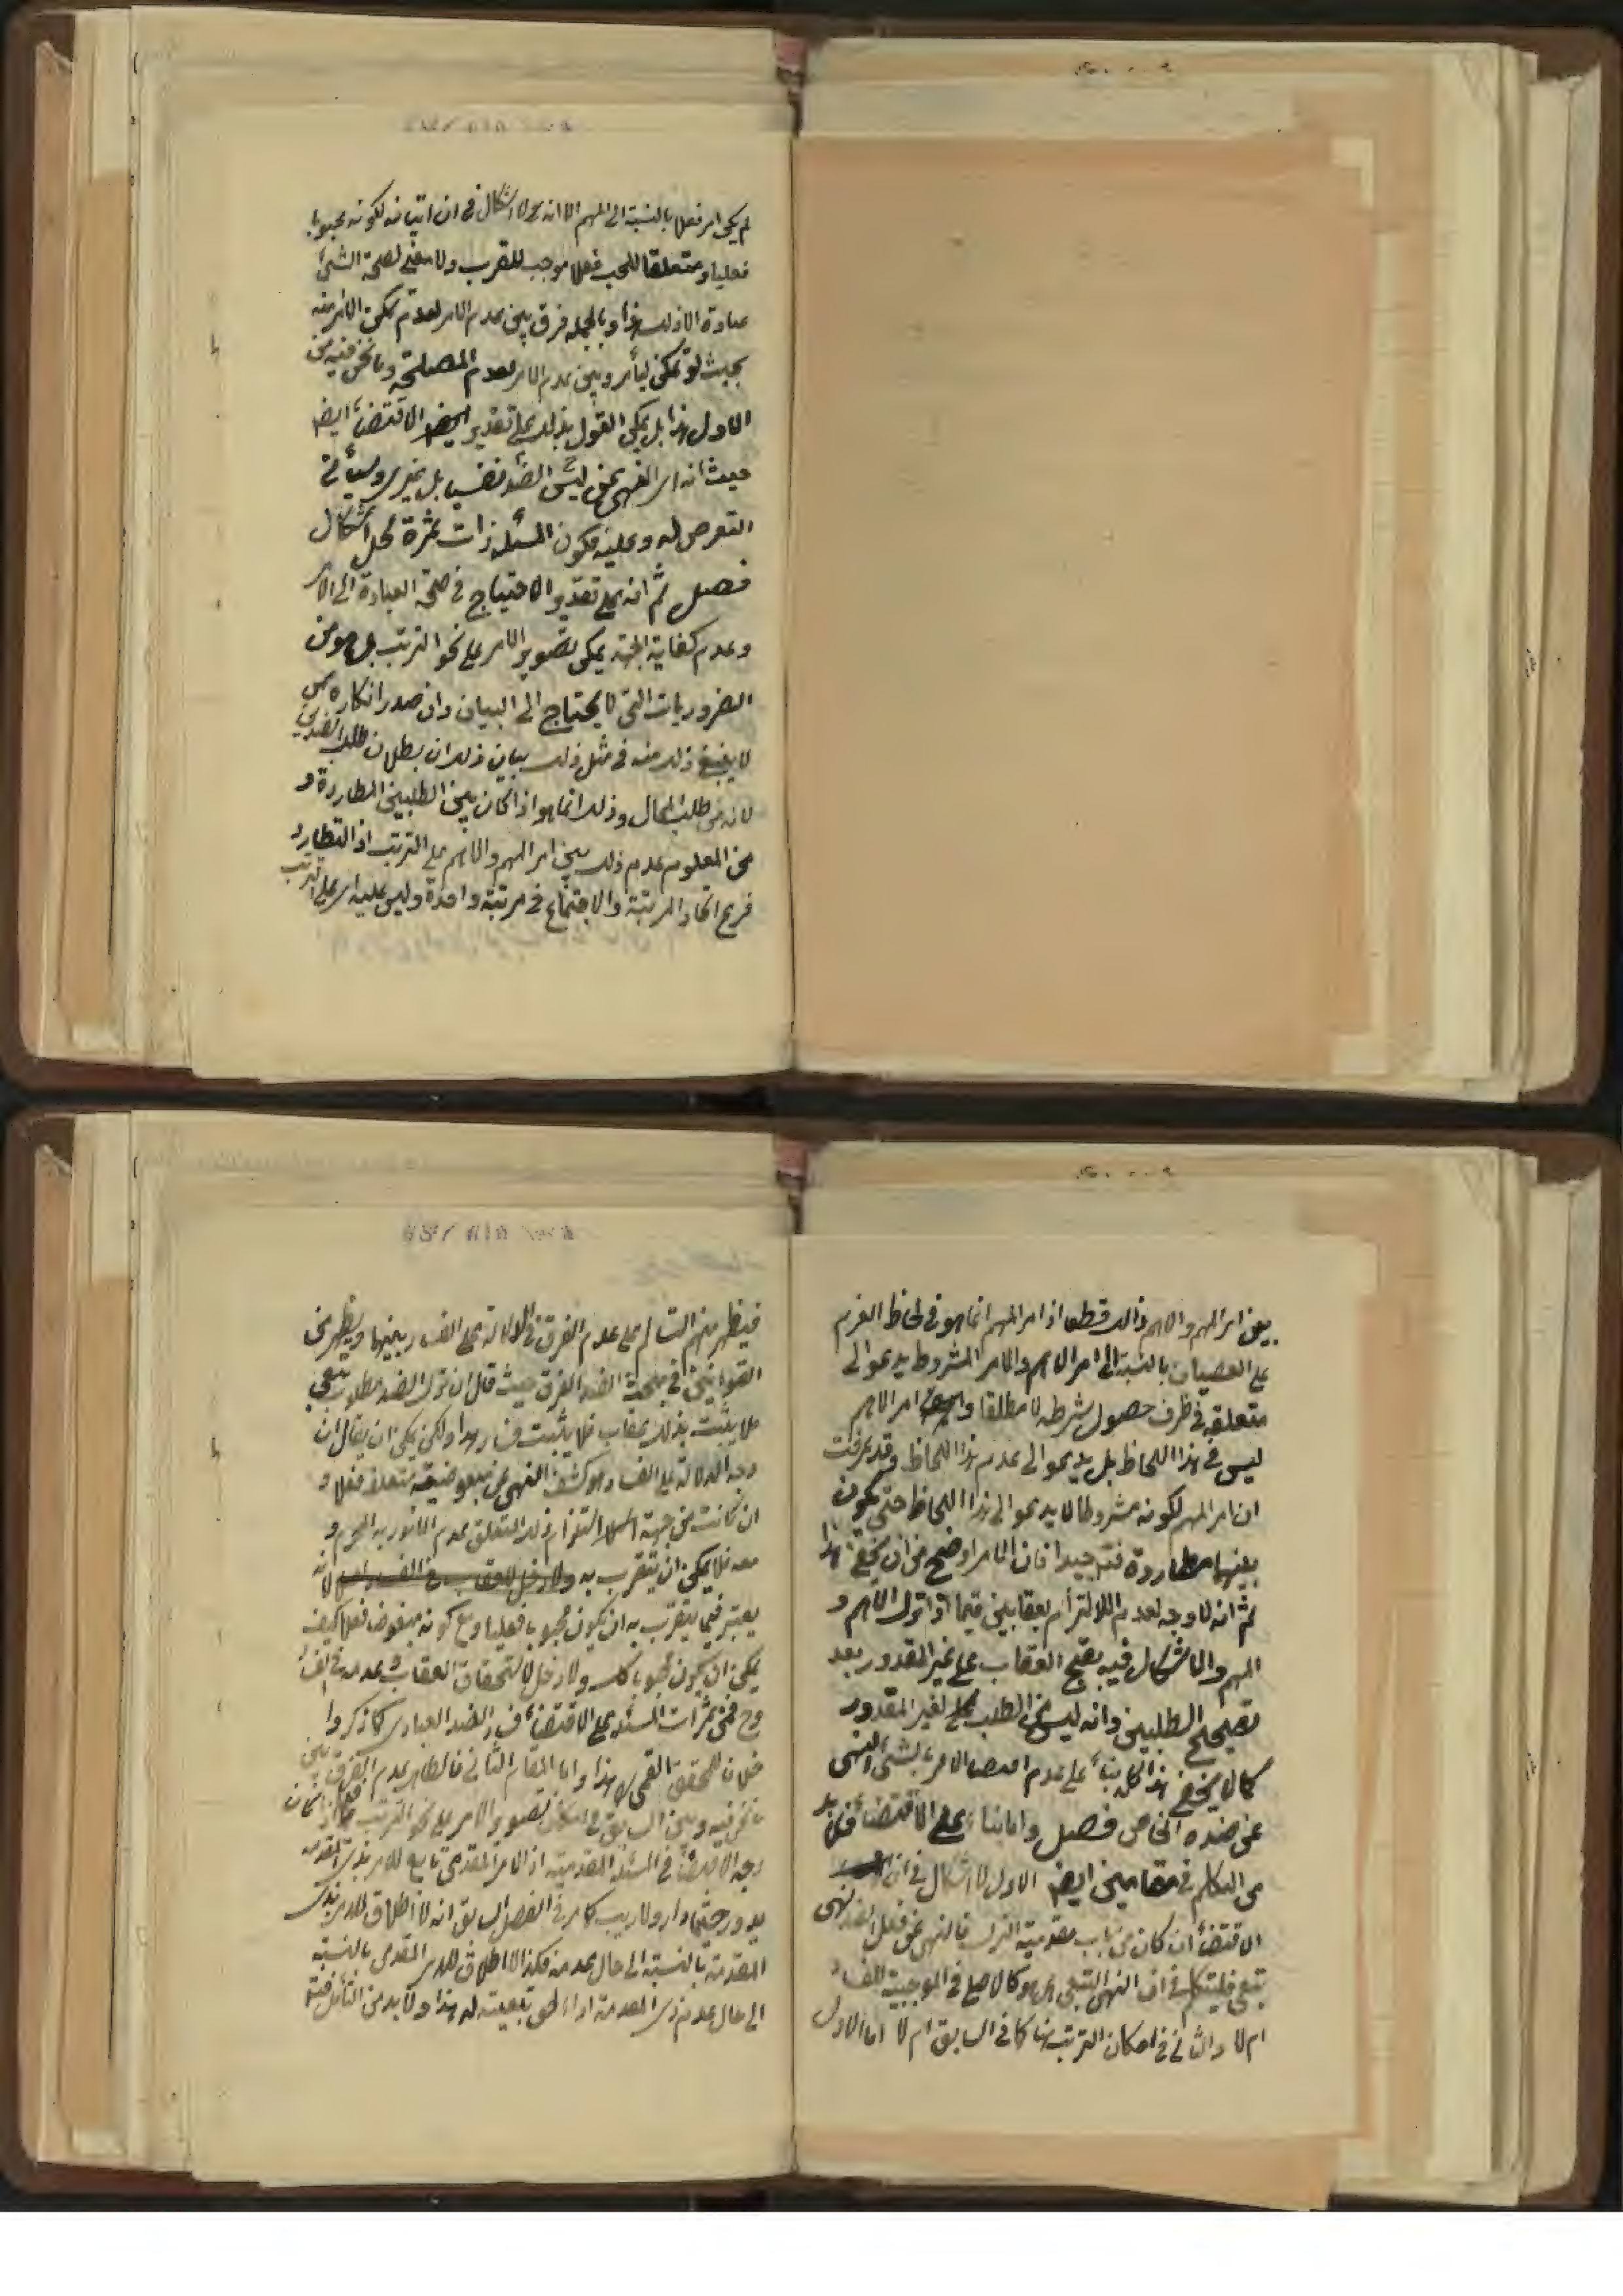 لم يكن امر فعلا بالنسبة الى المهم الا انه لا اشكال فى ان اتيانه لكونه محبوبا
فعليا ومتعلقا للحب فعلا موجب للقرب ولا معنى لصحة الشئ
عبادة الا ذلك هذا وبالجملة فرق بين عدم الامر لعدم تمكن الامر منه
بحيث لو تمكن ليأمر وبين عدم الامر لعدم المصلحة وما نحن فيه من
الاول هذا بل يمكن القول بذلك على تقدير الاقتضاء ايضا
حيث انه اى النهى عن الضد ليس نفسيا بل غيرى وسيأتى
التعرض له وعليه فكون المسئلة ذات ثمرة محل اشكال
فصل ثم انه على تقدير الاحتياج فى صحة العبادة الى الامر
وعدم كفاية الجهة يمكن تصوير الامر على نحو الترتب بل هو من
الضروريات التى لا يحتاج الى البيان وان صدر انكاره ممن
لا ينبغى ذلك منه فى مثل ذلك بيان ذلك ان بطلان طلب الضدين
لانه من طلب المحال وذلك انما هو اذا كان بين الطلبين المطاردة و
من المعلوم عدم ذلك بين امر المهم والاهم على الترتب اذ التطارد
فرع اتحاد المرتبة والاجتماع فى مرتبة واحدة وليس عليه اى على الترتب
بين امر المهم والاهم ذلك قطعا اذ امر المهم انما هو فى لحاظ العزم
على العصيان بالنسبة الى امر الاهم والامر المشروط يدعو الى
متعلقه فى ظرف حصول شرطه لا مطلقا وامر الاهم
ليس فى هذا اللحاظ بل يدعو الى عدم هذا اللحاظ وقد عرفت
ان امر المهم لكونه مشروطا لا يدعو الى هذا اللحاظ حتى يكون
بينهما مطاردة فتدبر جيدا فان الامر اوضح من ان يخفى هذا
ثم انه لا وجه لعدم الالتزام بعقابين فيما اذا ترك الاهم و
المهم والاشكال فيه بقبح العقاب على غير المقدور بعد
تصحيح الطلبين وانه ليس من الطلب لغير المقدور
كما لا يخفى هذا كله بناء على عدم اقتضاء الامر بالشئ النهى
عن ضده الخاص فصل واما بناء على الاقتضاء فلا بد
من التكلم فى مقامين ايضا الاول لا اشكال فى ان
الاقتضاء ان كان من باب مقدمية الترك فالنهى عن فعل الضد نهى
تبعى فليتكلم فى ان النهى التبعى هل هو كالاصلى فى الموجبية للفساد
ام لا والثانى فى امكان الترتب هنا كما فى السابق ام لا اما الاول
فيظهر منهم التسالم على عدم الفرق فى الدلالة على الفساد بينهما ويظهر من
القوانين فى مبحث الضد الفرق حيث قال ان ترك الضد مطلوب تبعى
فلا يثبت بذلك عقاب فلا يثبت فساد هذا ولكن يمكن ان يقال ان
وجه الدلالة على الفساد هو كشف النهى عن مبغوضية متعلقه فعلا و
ان كانت من جهة استلزام ذلك المتعلق عدم المامور به المحرم و
معه فلا يمكن ان يتقرب به لانه
يعتبر فيما يتقرب به ان يكون محبوبا فعليا ومع كونه مبغوضا فعلا كيف
يمكن ان يكون محبوبا كك ولا دخل لاستحقاق العقاب وعدمه فى الفساد
وح فمن ثمرات المسئلة على الاقتضاء فساد الضد العبادى كما ذكروا
خلافا للمحقق القمى ره هذا واما المقام الثانى فالظاهر عدم الفرق بين
ما نحن فيه وبين السابق فى امكان تصوير الامر على نحو الترتب اذا كان
وجه الاقتضاء فى المسئلة المقدمية اذ الامر المقدمى تابع للامر بذى المقدمة
يدور حيثما دار ولا ريب كما مر فى الفصل السابق انه لا اطلاق للامر بذى
المقدمة بالنسبة الى حال عدمه فكذا لا اطلاق للامر المقدمى بالنسبة
الى حال عدم ذى المقدمة تبعيته له هذا ولا بد من التأمل فتدبر